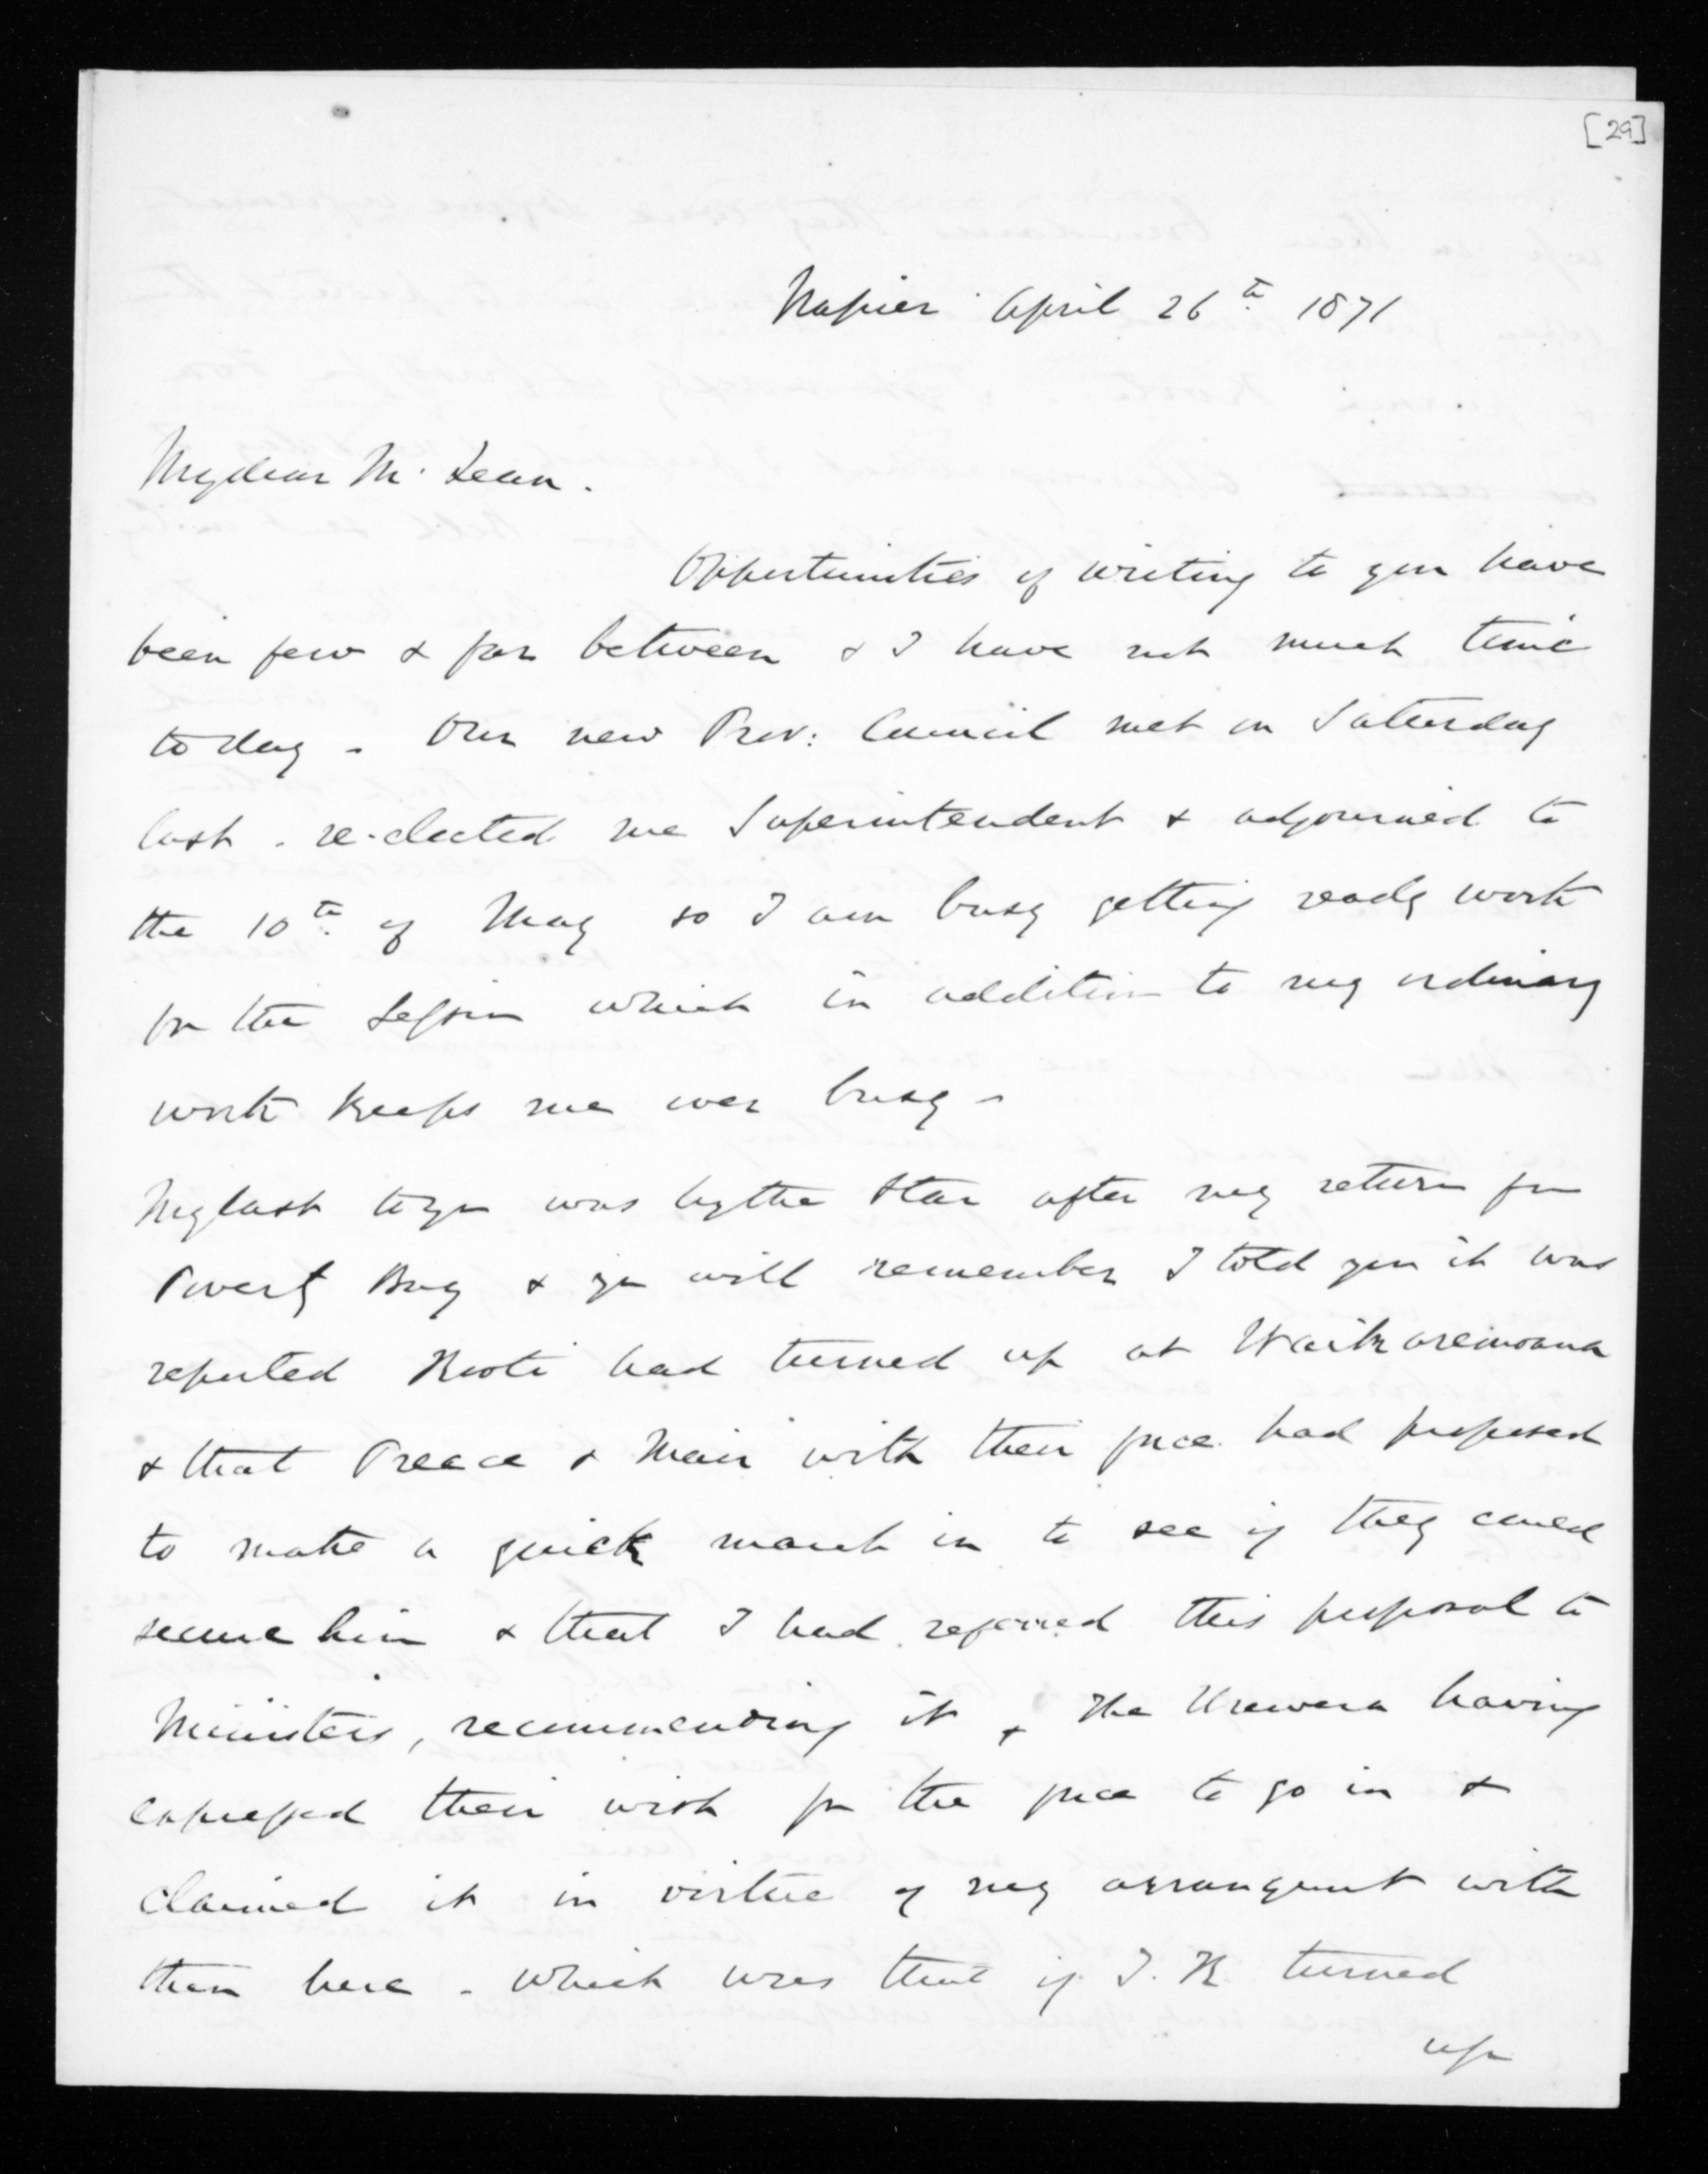 [29]
Napier April 26th 1871
My dear McLean.
Opportunities of writing to you have
been few & far between & I have not much time
to day - Our new Prov: Council met on Saturday
last - re-elected me Superintendent & adjourned to
the 10th of May so I am busy getting ready work
for the Session which in addition to my ordinary
work keeps me over busy -
My last to you was by the Star after my return from
Poverty Bay & you will remember I told you it was
reported Kooti had turned up at Waikaremoana
& that Preece & Mair with their force had proposed
to make a quick march in to see if they could
secure him & that I had referred this proposal to
Ministers, recommending it, the Urewera having
expressed their wish for the force to go in &
claimed it in virtue of my arrangment with
them here - which was that if T. K turned
up